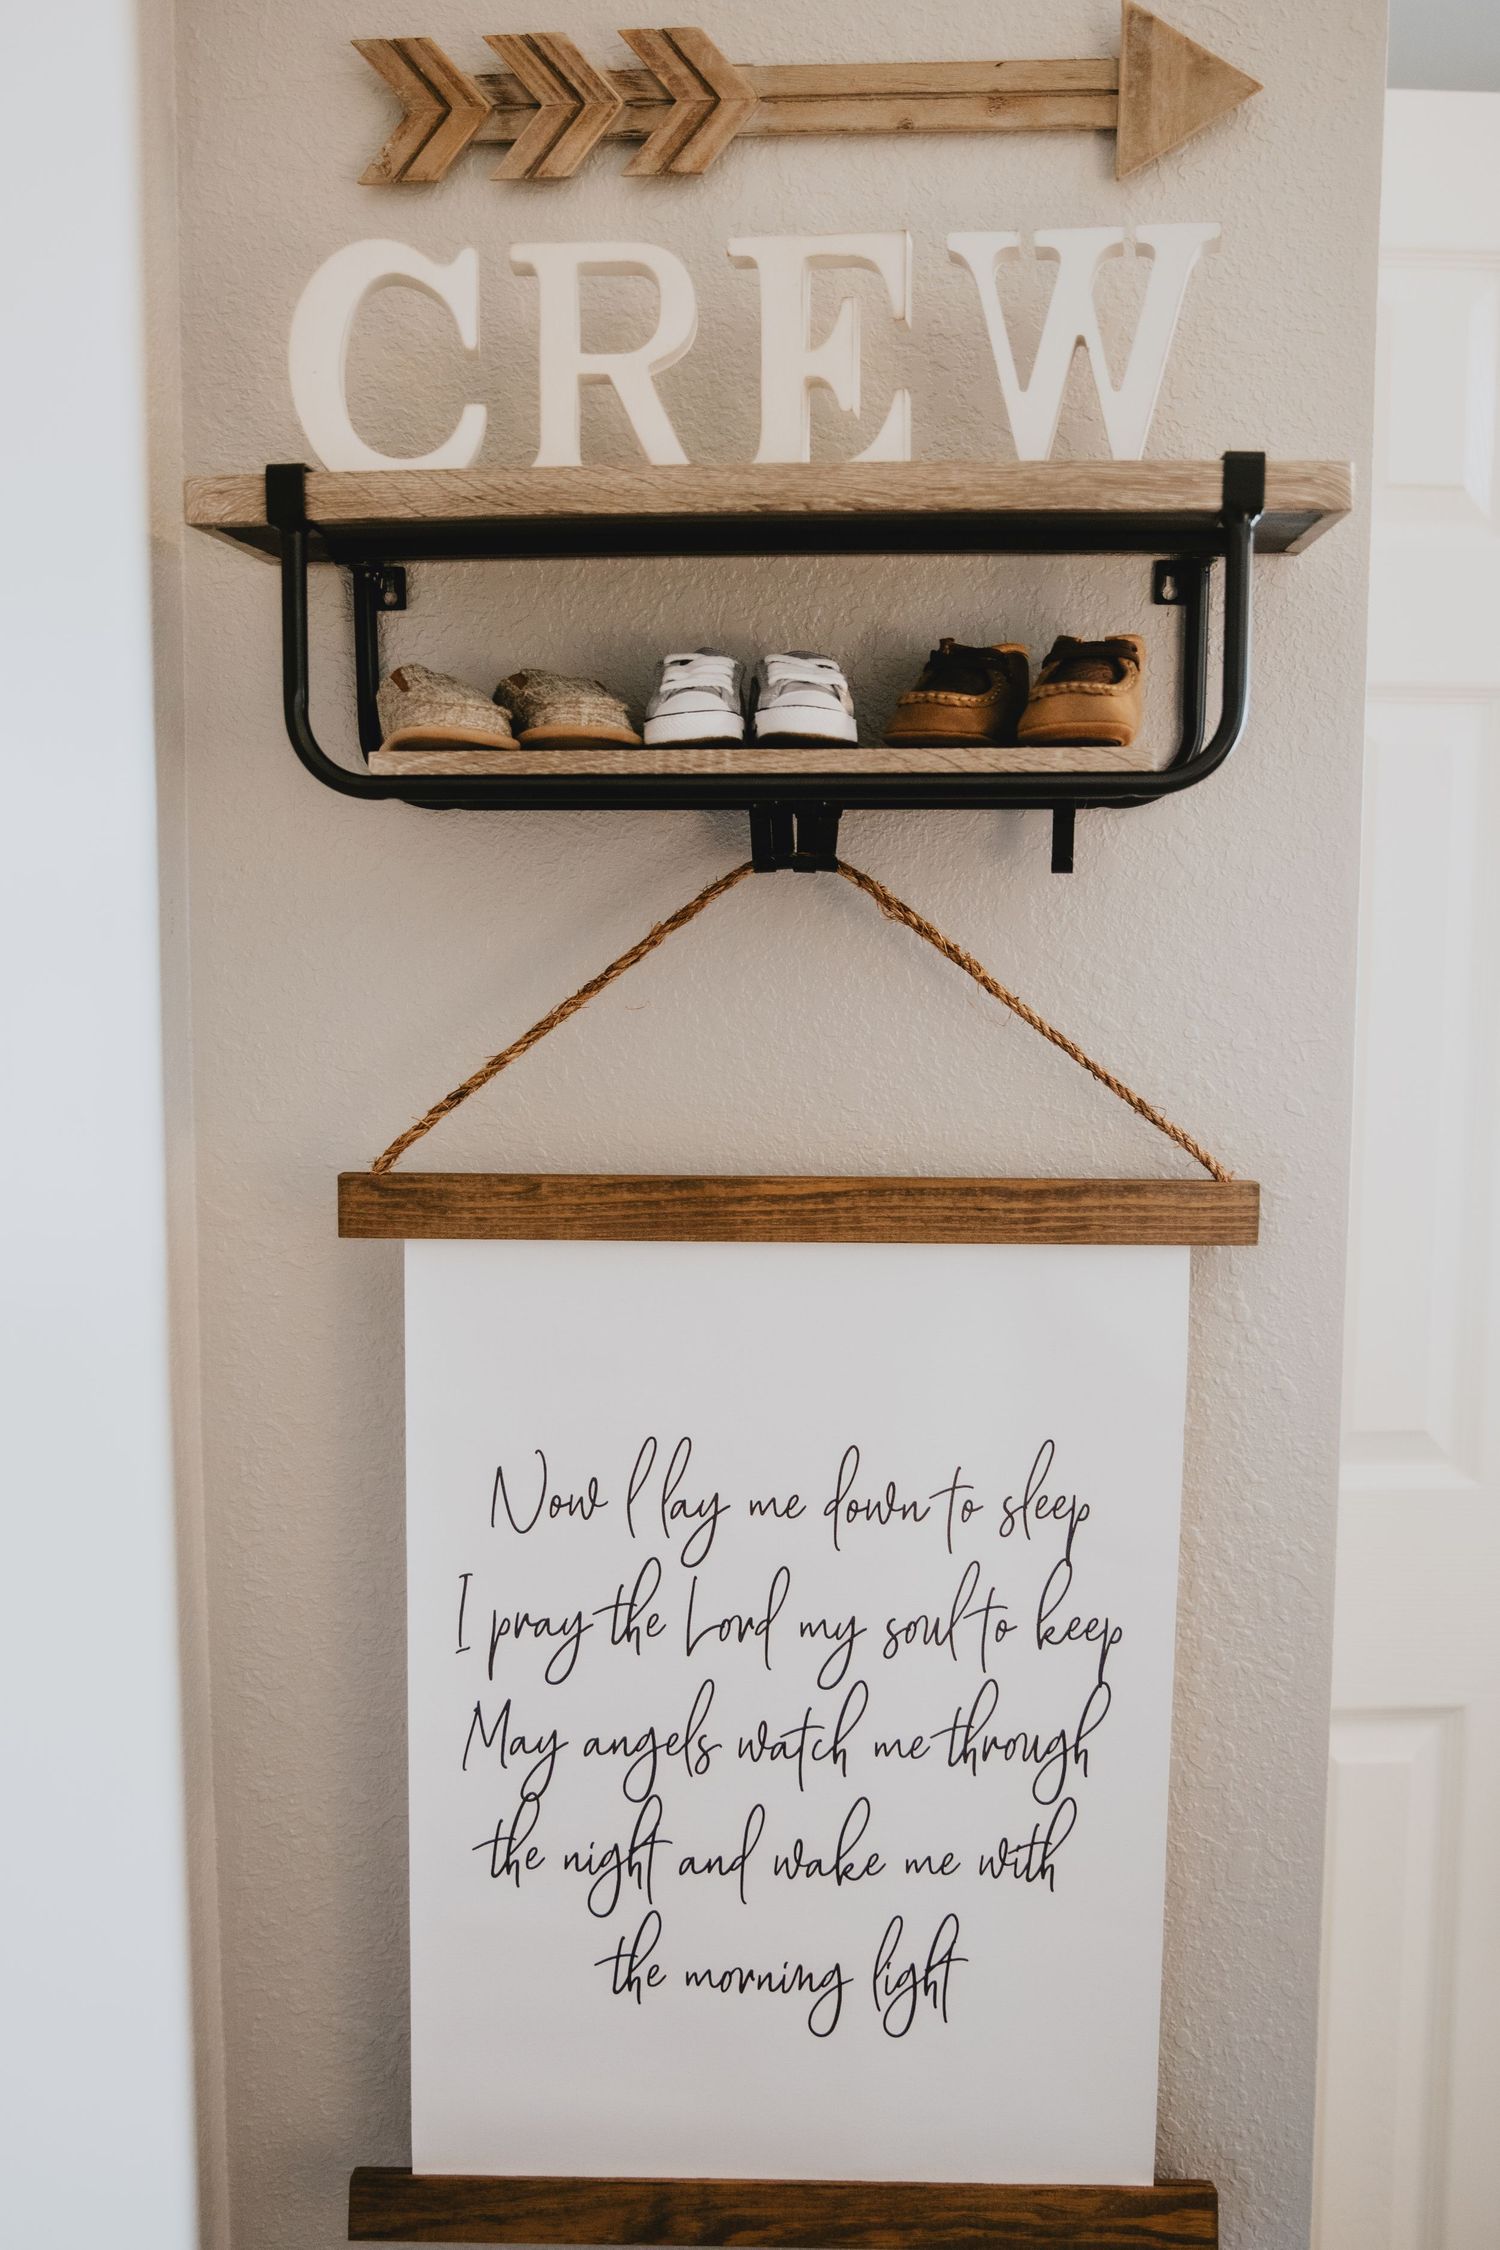 CREW
Now I lay me down to sleep
I pray the Lord my soul to keep
May angels watch me through
the night and wake me with
the morning light